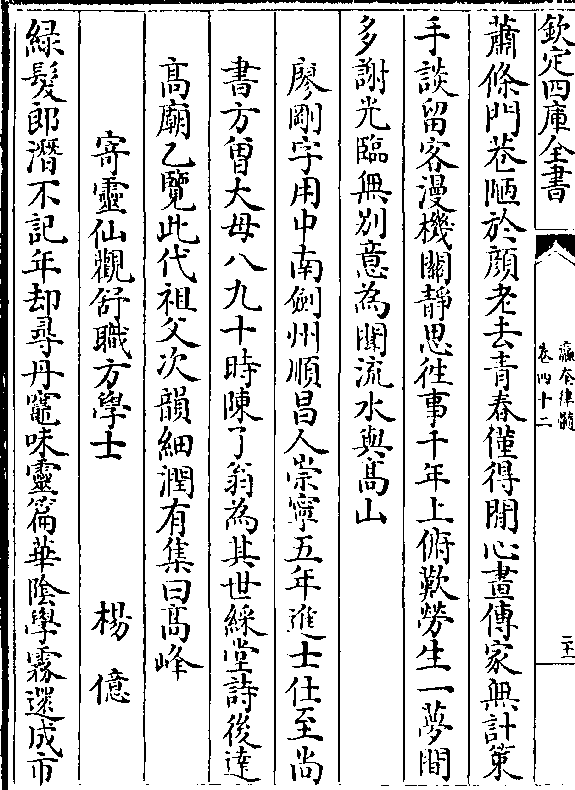 欽定四庫全書
瀛奎律髓
卷四十二
二十一
蕭條門巷陋於顔老去青春僅得閒心畫傳家無計策
手談留客漫機關靜思徃事千年上俯歎勞生一夢間
多謝光臨無别意為闗流水與髙山
廖剛字用中南劍州順昌人崇寧五年進士仕至尚
書方曾大母八九十時陳了翁為其世綵堂詩後達
髙廟乙覽此代祖父次韻細潤有集曰髙峰
寄靈仙觀舒職方學士 楊億
緑髪郎潛不記年却尋丹竈味靈篇華隂學霧還成市